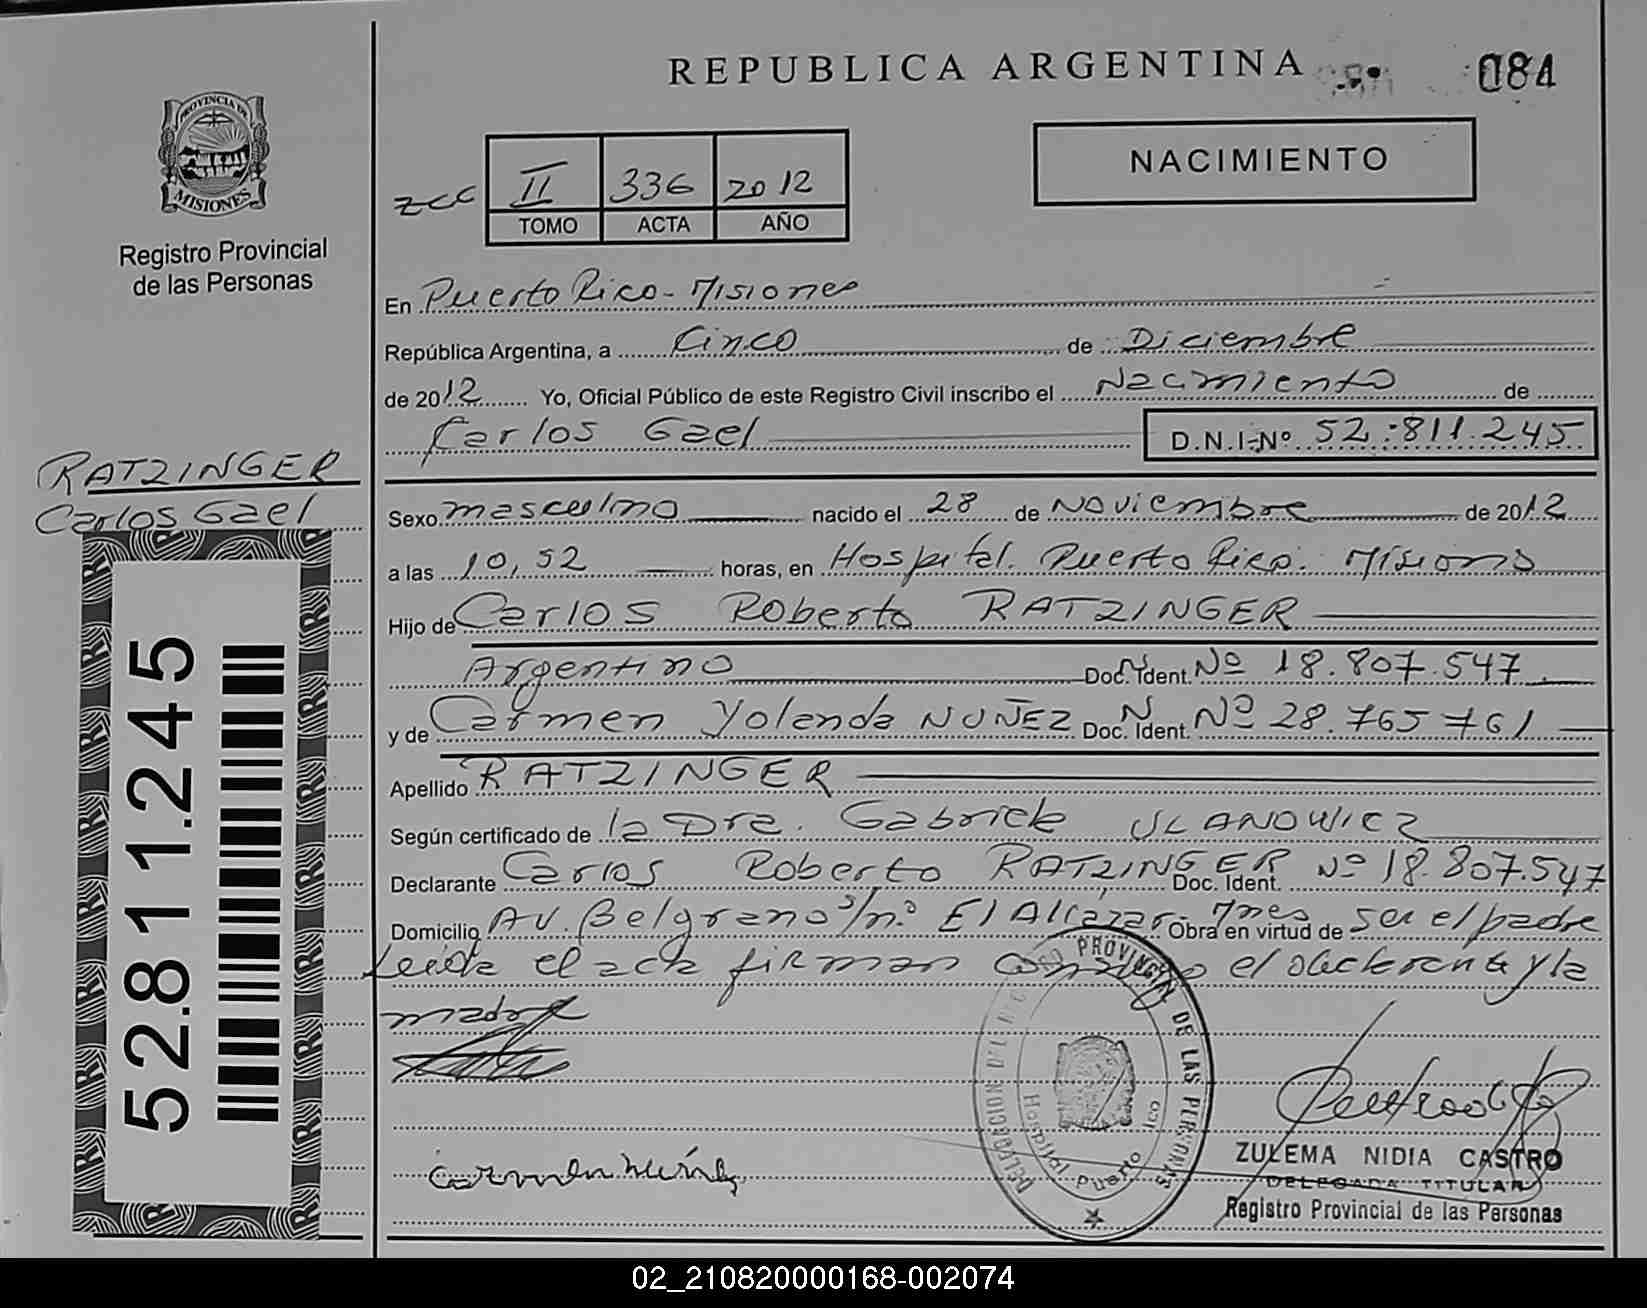 REPUBLICA ARGENTINA
084
PROVINCIA DE
MISIONES
Registro Provincial
de las Personas
NACIMIENTO
II 336 2012
TOMO ACTA AÑO
En Puerto Rico - Misiones
República Argentina, a Cinco de Diciembre
de 2012 Yo, Oficial Público de este Registro Civil inscribo el Nacimiento de
Carlos Gael
D.N.I. Nº 52.811.245
RATZINGER
Carlos Gael
52.811.245
Sexo masculino nacido el 28 de Noviembre de 2012
a las 10,52 horas, en Hospital. Puerto Rico. Misiones
Hijo de Carlos Roberto RATZINGER
Argentino Doc. Ident. Nº 18.807.547
y de Carmen Yolanda NUÑEZ Doc. Ident. Nº 28.765.761
Apellido RATZINGER
Según certificado de la Dra. Gabriela ULANOWICZ
Declarante Carlos Roberto RATZINGER Doc. Ident. Nº 18.807.547
Domicilio AV. Belgrano s/nº El Alcazar - Mnes Obra en virtud de ser el padre
Leida el acta firman conmigo el declarante y la
madre
DELEGACION DEL REGISTRO PROVINCIAL DE LAS PERSONAS
Hospital Puerto Rico
Carmen Núñez
ZULEMA NIDIA CASTRO
DELEGADA TITULAR
Registro Provincial de las Personas
02_210820000168-002074